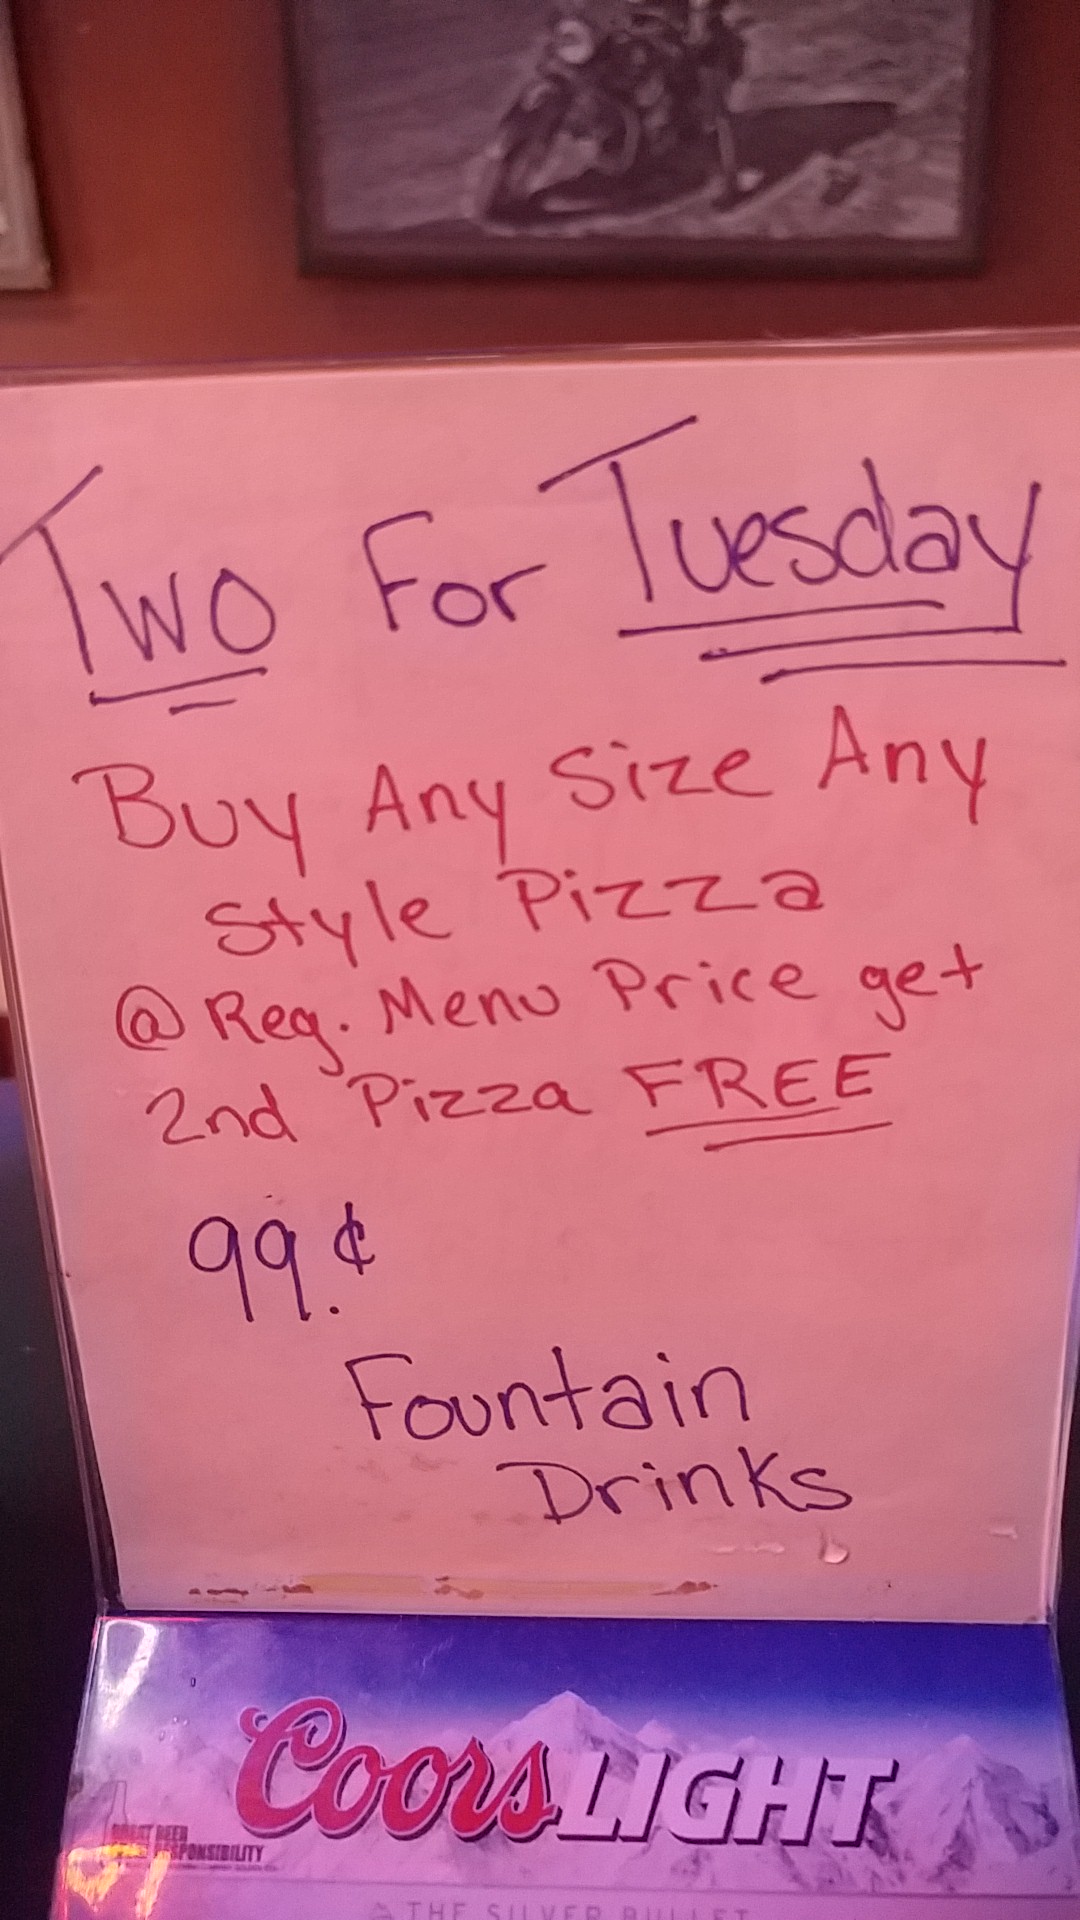 Two For Tuesday
Buy Any Size Any
Style Pizza
@ Reg. Menu Price get
2nd Pizza FREE
99.¢
Fountain
Drinks
Coors LIGHT
BEER
THE SILVER BULLET